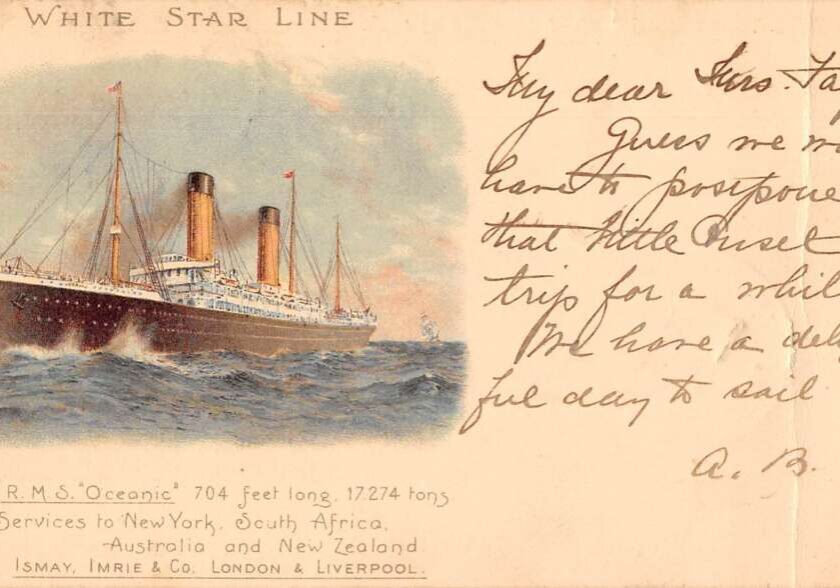 WHITE STAR LINE
R.M.S. "Oceanic" 704 feet long, 17274 tons
Services to New York, South Africa,
Australia and New Zealand.
ISMAY, IMRIE & Co. LONDON & LIVERPOOL.
My dear Mrs.
Guess we
have to postpone
that little
trip for a
We have a
ful day to sail
A. B.